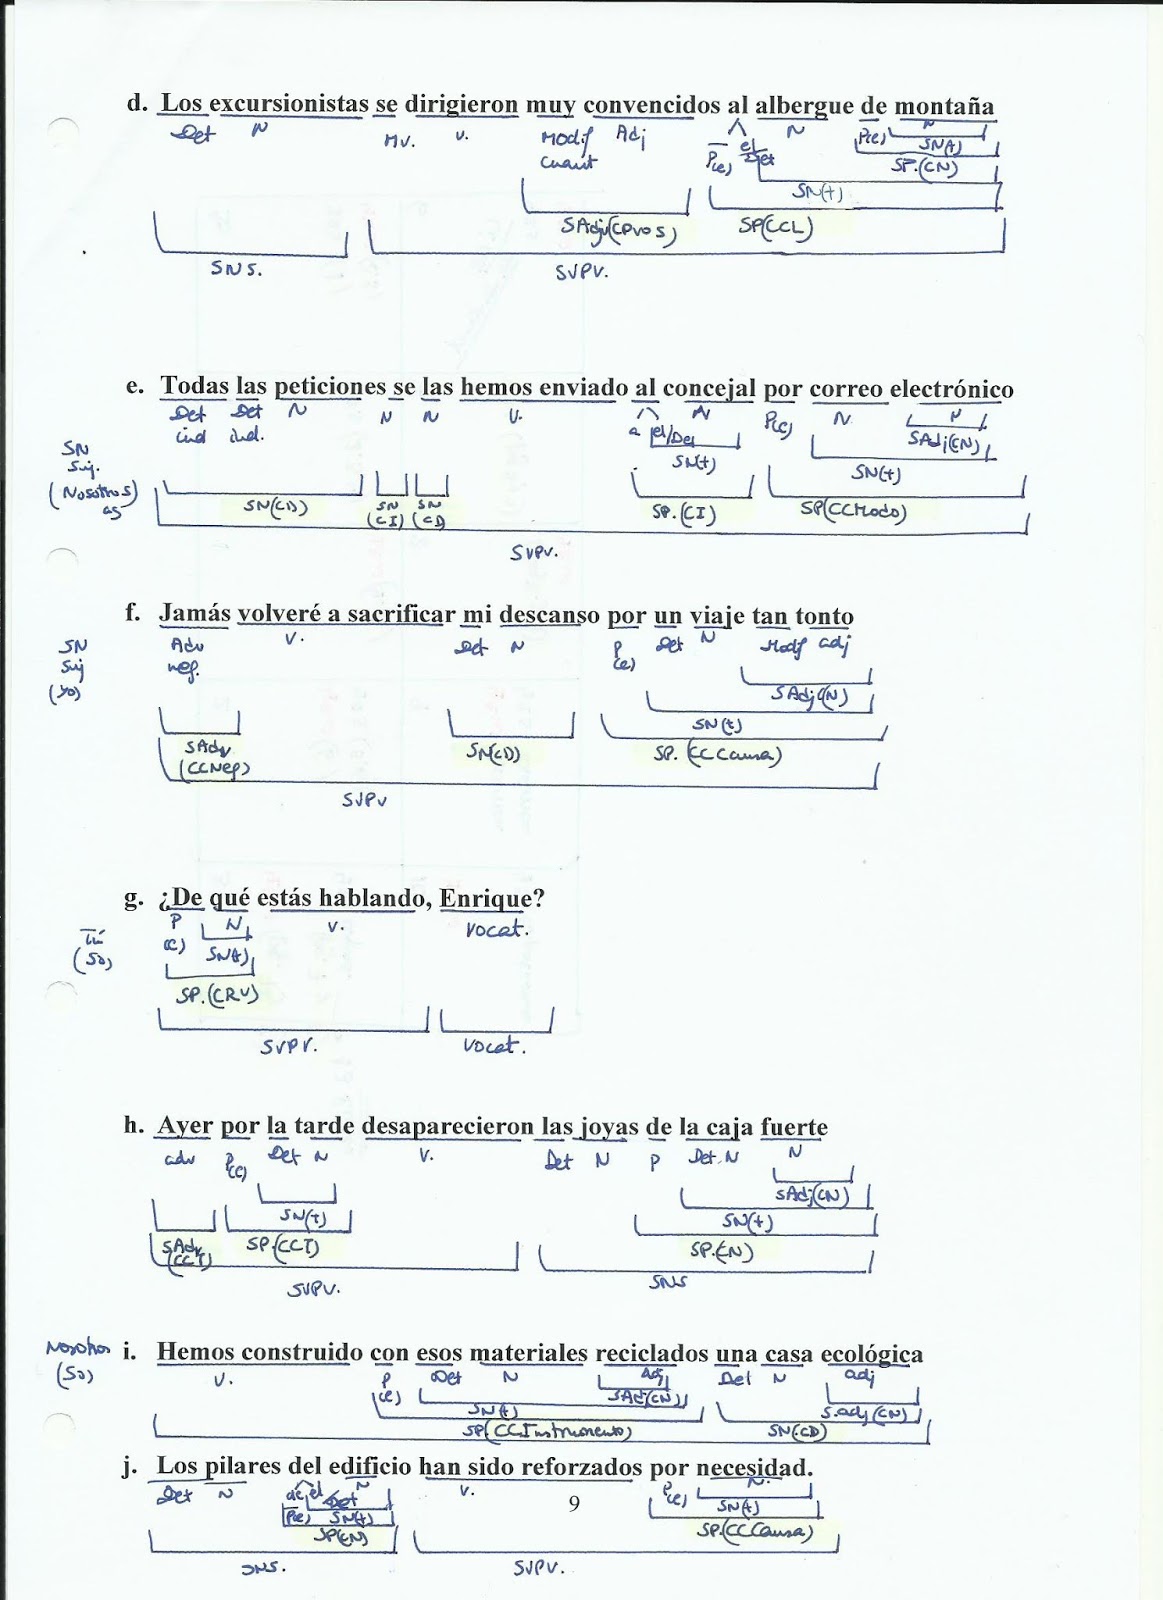 d. Los excursionistas se dirigieron muy convencidos al albergue de montaña
Det N Mv. v. Modif Adj N P(e) N
cuant P(e) el Det SN(t)
SP.(CN)
SN(t)
SAdj(CPVOS) SP(CCL)
SNS. SVPV.
e. Todas las peticiones se las hemos enviado al concejal por correo electrónico
Det Det N N N V. N P(e) N N
ind ind. a el/Det SAdj(CN)
SN SN(t) SN(t)
Suj.
(Nosotros) SN(CD) SN SN SP.(CI) SP(CCModo)
as (CI) (CD)
SVPV.
f. Jamás volveré a sacrificar mi descanso por un viaje tan tonto
SN Adv V. Det N P Det N Modf adj
Suj neg. (e)
(yo) SAdj(N)
SN(t)
SAdv SN(CD) SP. (CCCausa)
(CCNeg)
SVPV
g. ¿De qué estás hablando, Enrique?
Tú P N V. Vocat.
(SO) (e) SN(t)
SP.(CRV)
SVPV. Vocat.
h. Ayer por la tarde desaparecieron las joyas de la caja fuerte
adv P(e) Det N V. Det N P Det. N N
SAdj(CN)
SN(t) SN(t)
SAdv SP.(CCT) SP.(CN)
(CCT)
SVPV. SNS
Nosotros i. Hemos construido con esos materiales reciclados una casa ecológica
(SO) V. P Det N Adj Det N adj
(e) SAdj(CN) S.adj(CN)
SN(t)
SP(CCInstrumento) SN(CD)
j. Los pilares del edificio han sido reforzados por necesidad.
Det N de el N V. P(e) N.
Det 9
P(e) SN(t) SN(t)
SP(CN) SP.(CCCausa)
SNS. SVPV.